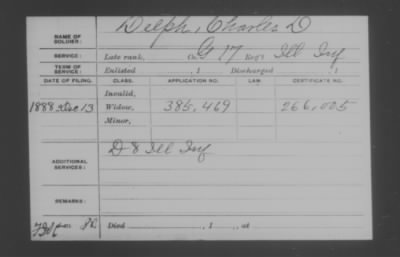 NAME OF SOLDIER: Delph, Charles D
SERVICE: Late rank, Co. G 17 Reg't Ill Inf
TERM OF SERVICE: Enlisted , 1 Discharged , 1
DATE OF FILING. CLASS. APPLICATION NO. LAW. CERTIFICATE NO.
Invalid,
1888 Dec 13 Widow, 385,469 266,005
Minor,
ADDITIONAL SERVICES: D 8 Ill Inf
REMARKS:
Died , 1 , at